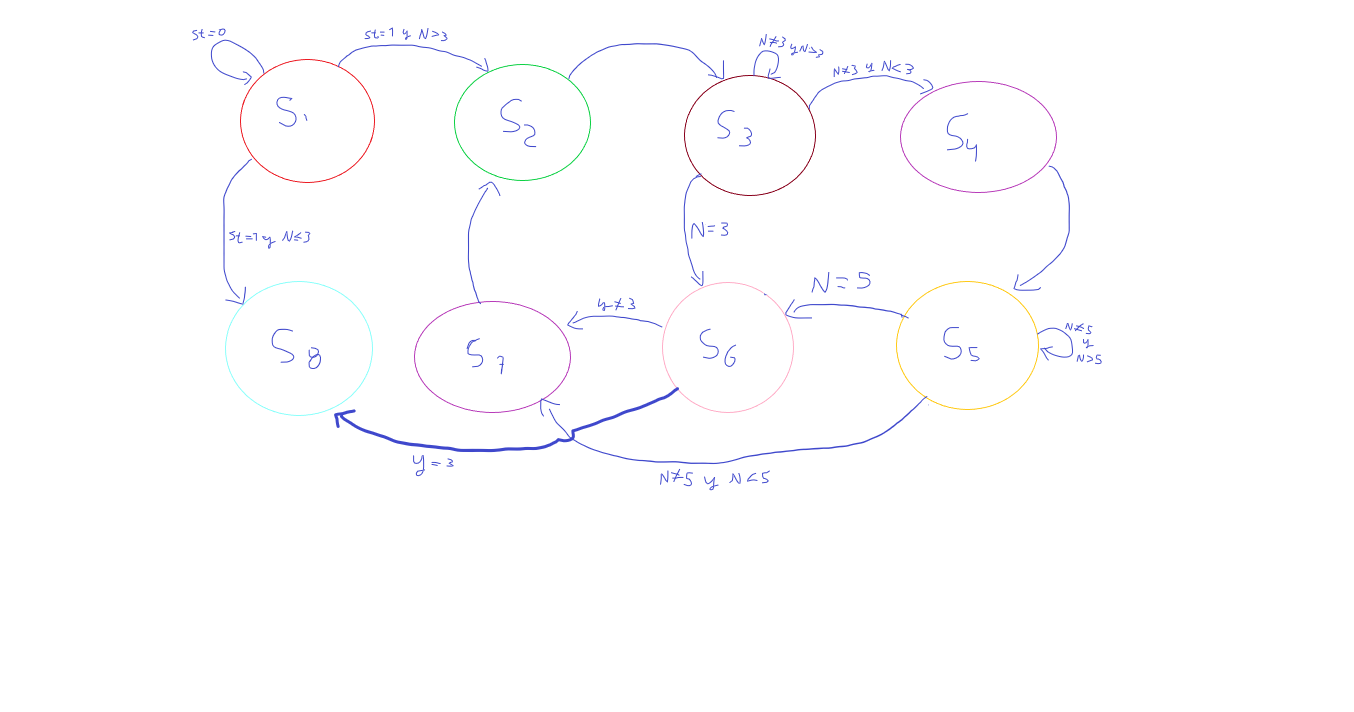 st=0
st=1 y N>3
N≠3 y N>3
N≠3 y N<3
S1
S2
S3
S4
st=1 y N≤3
N=3
N=5
y≠3
S8
S7
S6
S5
N≠5
y
N>5
y=3
N≠5 y N<5